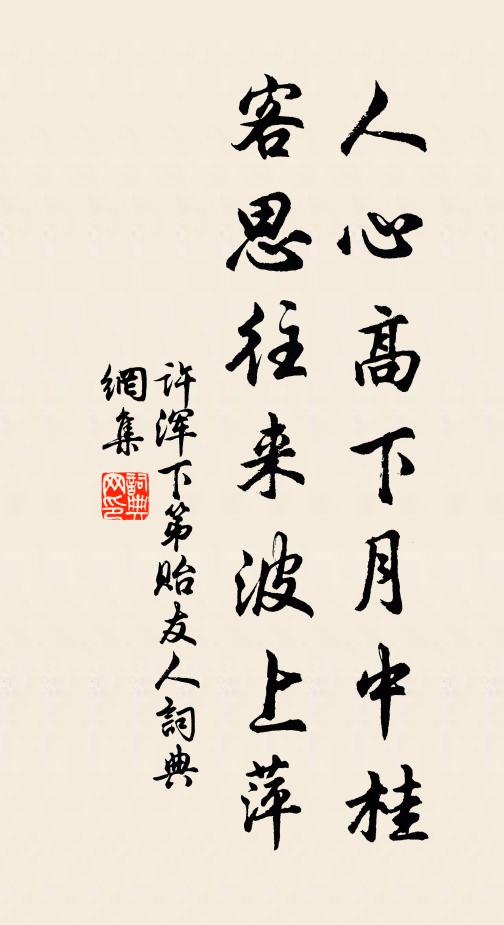 人心高下月中桂
客思往来波上萍
许浑下第贻友人詞典
網集
詞典
网印